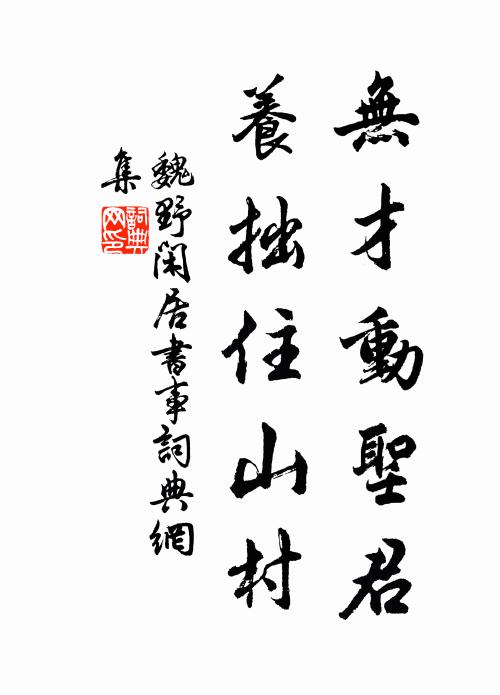 無才動聖君
養拙住山村
魏野閑居書事詞典網
集
詞典
网印